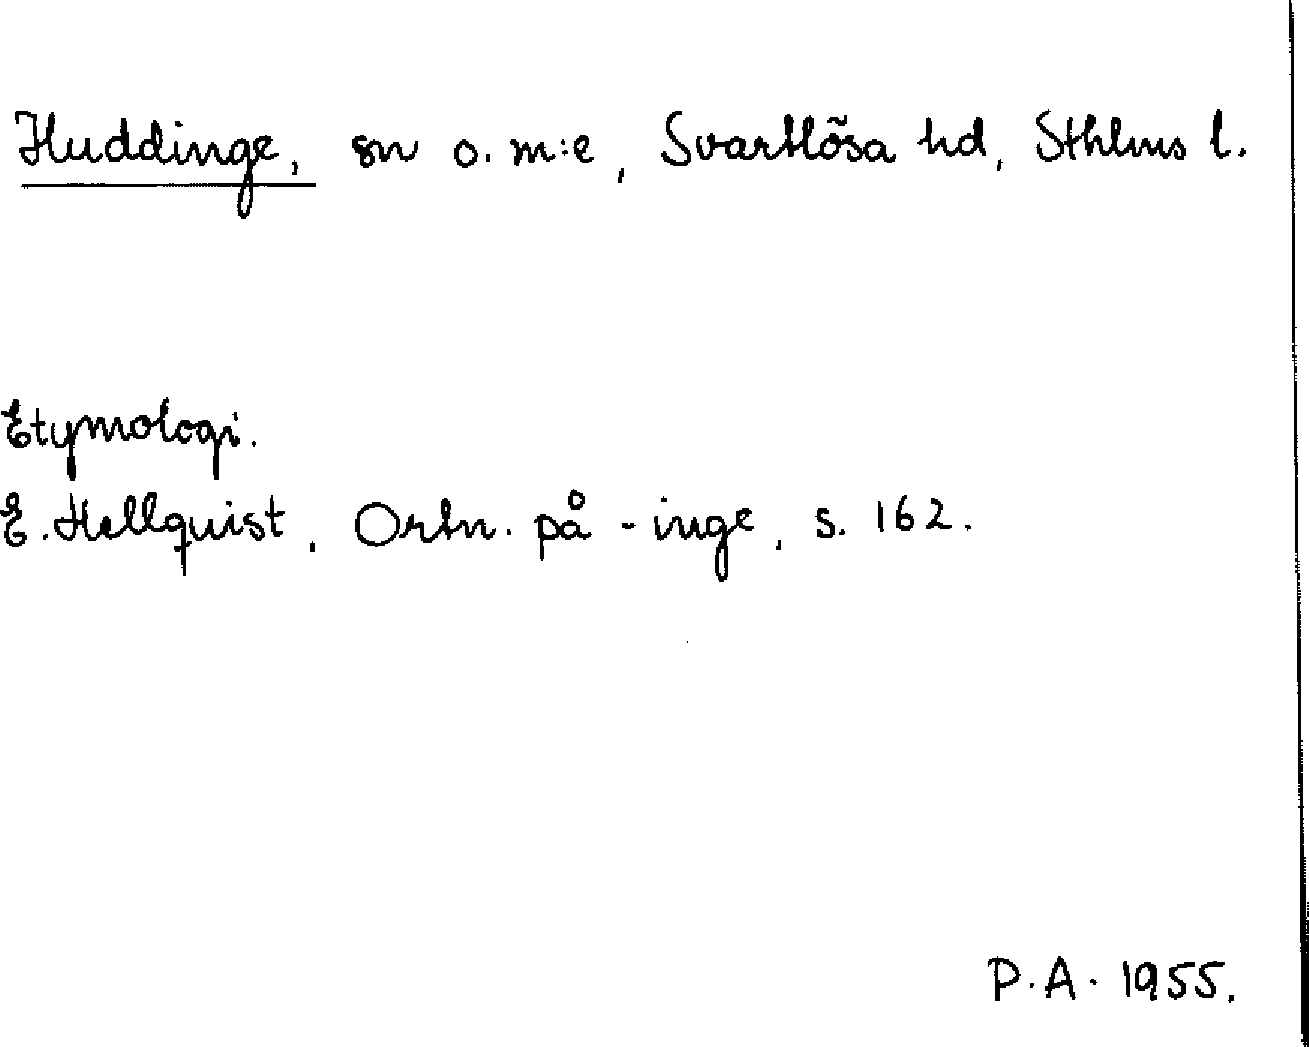 Huddinge, sn o. m:e, Svartlösa hd, Sthlms l.
Etymologi.
E. Hellquist, Ortn. på -inge, s. 162.
P.A. 1955.